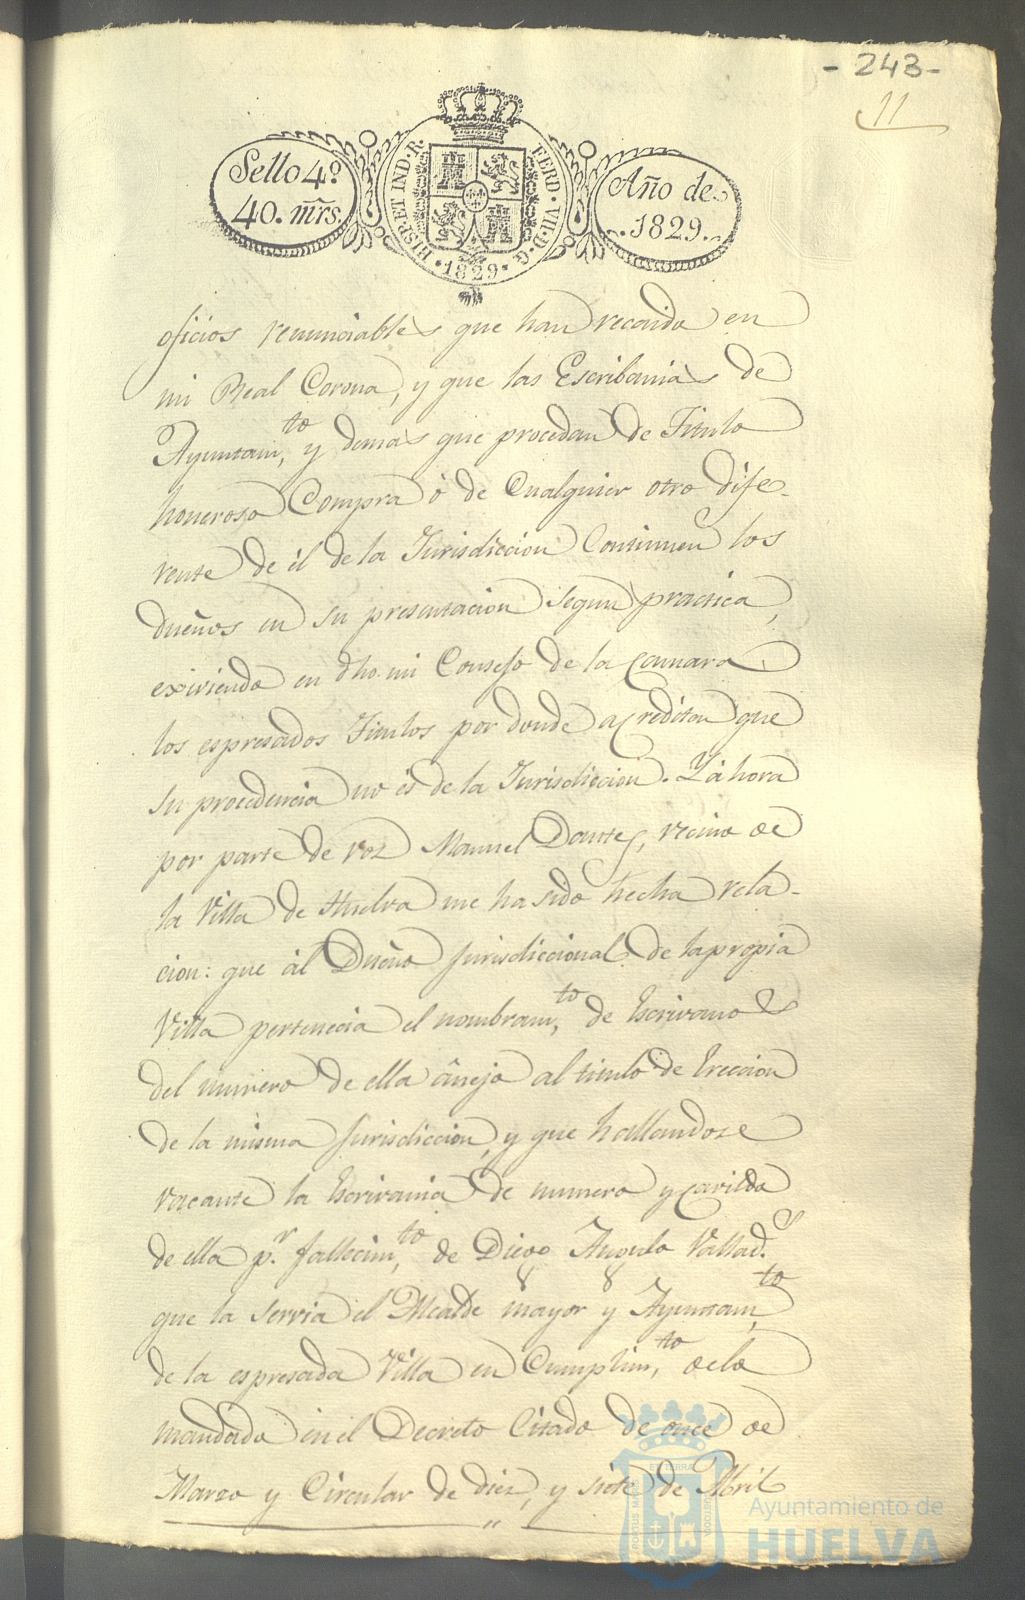 - 243 -
11
Sello 4º
40. mrs.
HISP. ET IND. R.
FERD. VII. D. G.
1829
Año de
1829.
oficios renunciables que han recaido en
mi Real Corona, y que las Escribanias de
Ayuntam.to y demas que procedan de Titulo
honeroso Compra ó de Cualquier otro dife-
rente de él de la Jurisdiccion Continuen los
dueños en su presentacion segun practica,
exiviendo en dho. mi Consejo de la Camara
los espresados Titulos por donde acrediten que
su procedencia no és de la Jurisdiccion. Y áhora
por parte de voz Manuel Dantes, vecino de
la Villa de Huelva me ha sido hecha rela-
cion: que ál Dueño Jurisdiccional de la propia
Villa pertenecia el nombram.to de Escrivanos
del numero de ella ánejo al titulo de Ereccion
de la misma Jurisdiccion, y que hallandose
vacante la Escrivania de numero y Cavildo
de ella p.r fallecim.to de Diego Angulo Vallad.s
que la servia el Alcalde mayor y Ayuntam.to
de la espresada Villa en Cumplim.to de lo
mandado en el Decreto Citado de once de
Marzo y Circular de diez, y siete de Abril
Ayuntamiento de
HUELVA